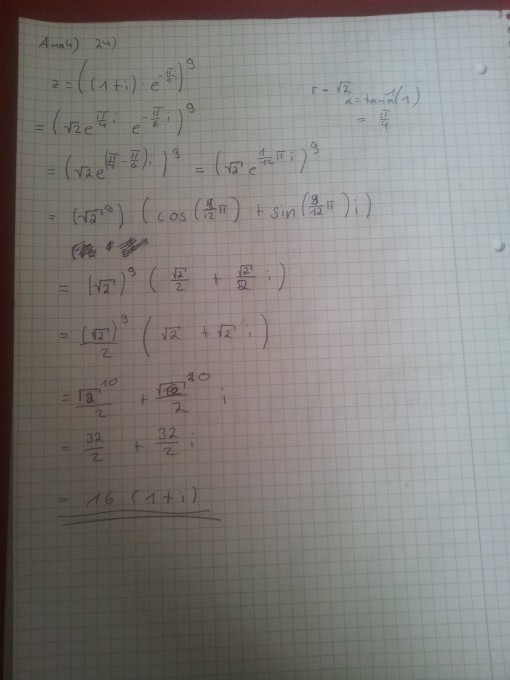 z = ((1+i) · e^{-π/6 i})^9
r = √2
α = tan^{-1}(1)
= π/4
= (√2 e^{π/4 i} e^{-π/6 i})^9
= (√2 e^{(π/4 - π/6) i})^9 = (√2 e^{1/12 π i})^9
= (√2^9) (cos(9/12 π) + sin(9/12 π) i)
= (√2)^9 (√2/2 + √2/2 i)
= (√2)^9/2 (√2 + √2 i)
= √2^10/2 + √2^10/2 i
= 32/2 + 32/2 i
= 16 (1+i)